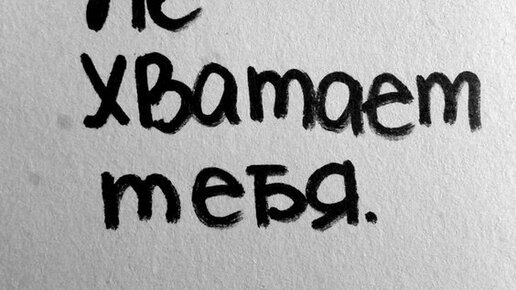 не
хватает
тебя.